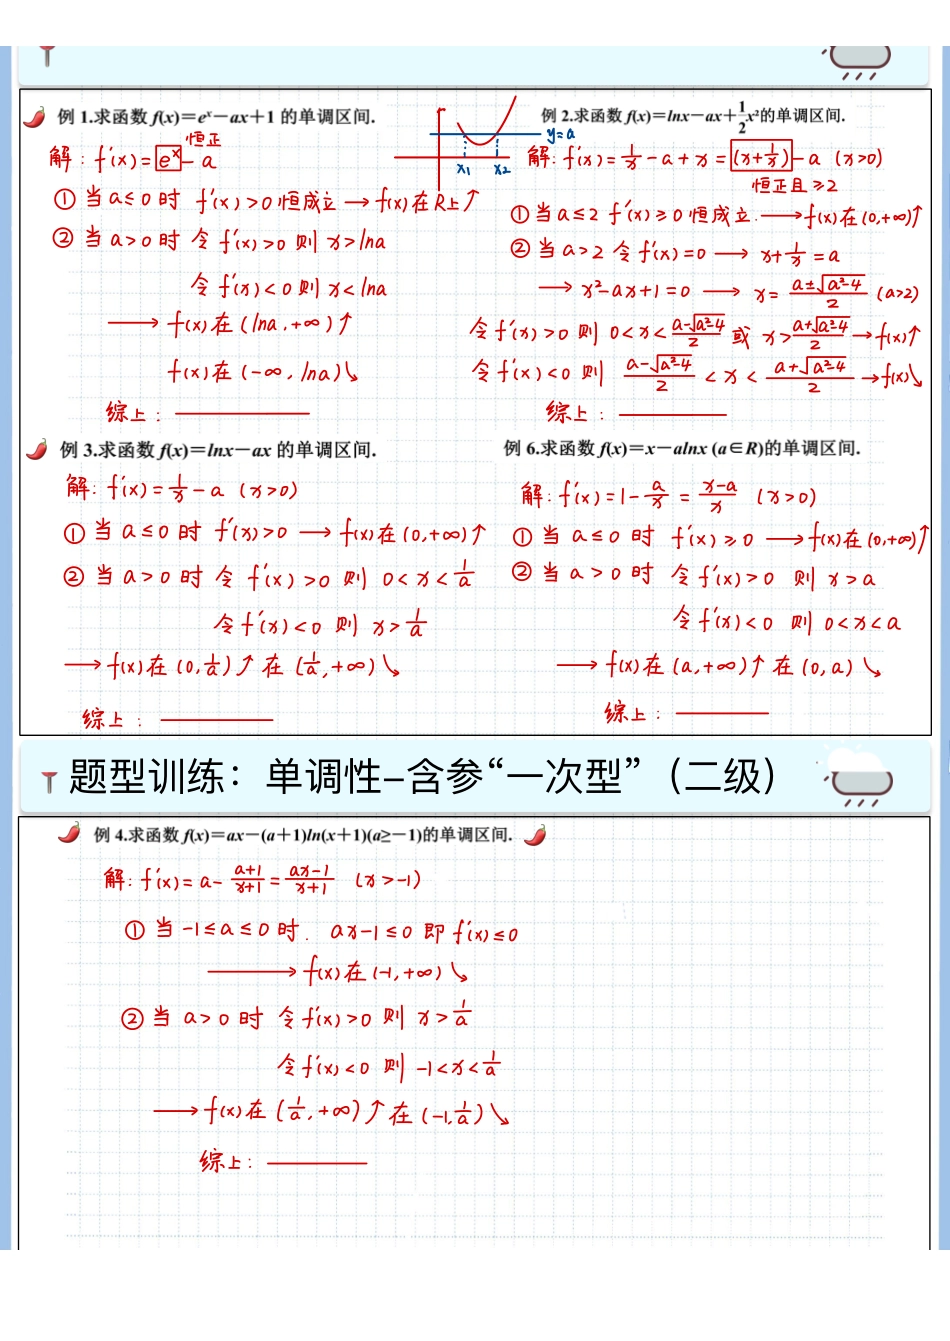 例 1.求函数 f(x)=eˣ-ax+1 的单调区间.
恒正
解: f′(x)= eˣ - a
y=a
x₁ x₂
① 当 a≤0 时 f′(x)>0 恒成立 → f(x)在R上↑
② 当 a>0 时 令 f′(x)>0 则 x>lna
令 f′(x)<0 则 x<lna
→ f(x)在(lna,+∞)↑
f(x)在(-∞,lna)↘
综上:
例 2.求函数 f(x)=lnx-ax+½x²的单调区间.
解: f′(x)= 1/x - a + x = (x+1/x) - a (x>0)
恒正且≥2
① 当 a≤2 f′(x)≥0 恒成立. → f(x)在(0,+∞)↑
② 当 a>2 令 f′(x)=0 → x+1/x=a
→ x²-ax+1=0 → x= (a±√(a²-4))/2 (a>2)
令 f′(x)>0 则 0<x<(a-√(a²-4))/2 或 x>(a+√(a²-4))/2 → f(x)↑
令 f′(x)<0 则 (a-√(a²-4))/2 < x < (a+√(a²-4))/2 → f(x)↘
综上:
例 3.求函数 f(x)=lnx-ax 的单调区间.
解: f′(x)= 1/x - a (x>0)
① 当 a≤0 时 f′(x)>0 → f(x)在(0,+∞)↑
② 当 a>0 时 令 f′(x)>0 则 0<x<1/a
令 f′(x)<0 则 x>1/a
→ f(x)在(0,1/a)↑ 在(1/a,+∞)↘
综上:
例 6.求函数 f(x)=x-alnx (a∈R)的单调区间.
解: f′(x)=1- a/x = (x-a)/x (x>0)
① 当 a≤0 时 f′(x)≥0 → f(x)在(0,+∞)↑
② 当 a>0 时 令 f′(x)>0 则 x>a
令 f′(x)<0 则 0<x<a
→ f(x)在(a,+∞)↑ 在(0,a)↘
综上:
题型训练：单调性–含参“一次型”（二级）
例 4.求函数 f(x)=ax-(a+1)ln(x+1)(a≥-1)的单调区间.
解: f′(x)= a- (a+1)/(x+1) = (ax-1)/(x+1) (x>-1)
① 当 -1≤a≤0 时. ax-1≤0 即 f′(x)≤0
→ f(x)在(-1,+∞)↘
② 当 a>0 时 令 f′(x)>0 则 x>1/a
令 f′(x)<0 则 -1<x<1/a
→ f(x)在(1/a,+∞)↑ 在(-1,1/a)↘
综上: